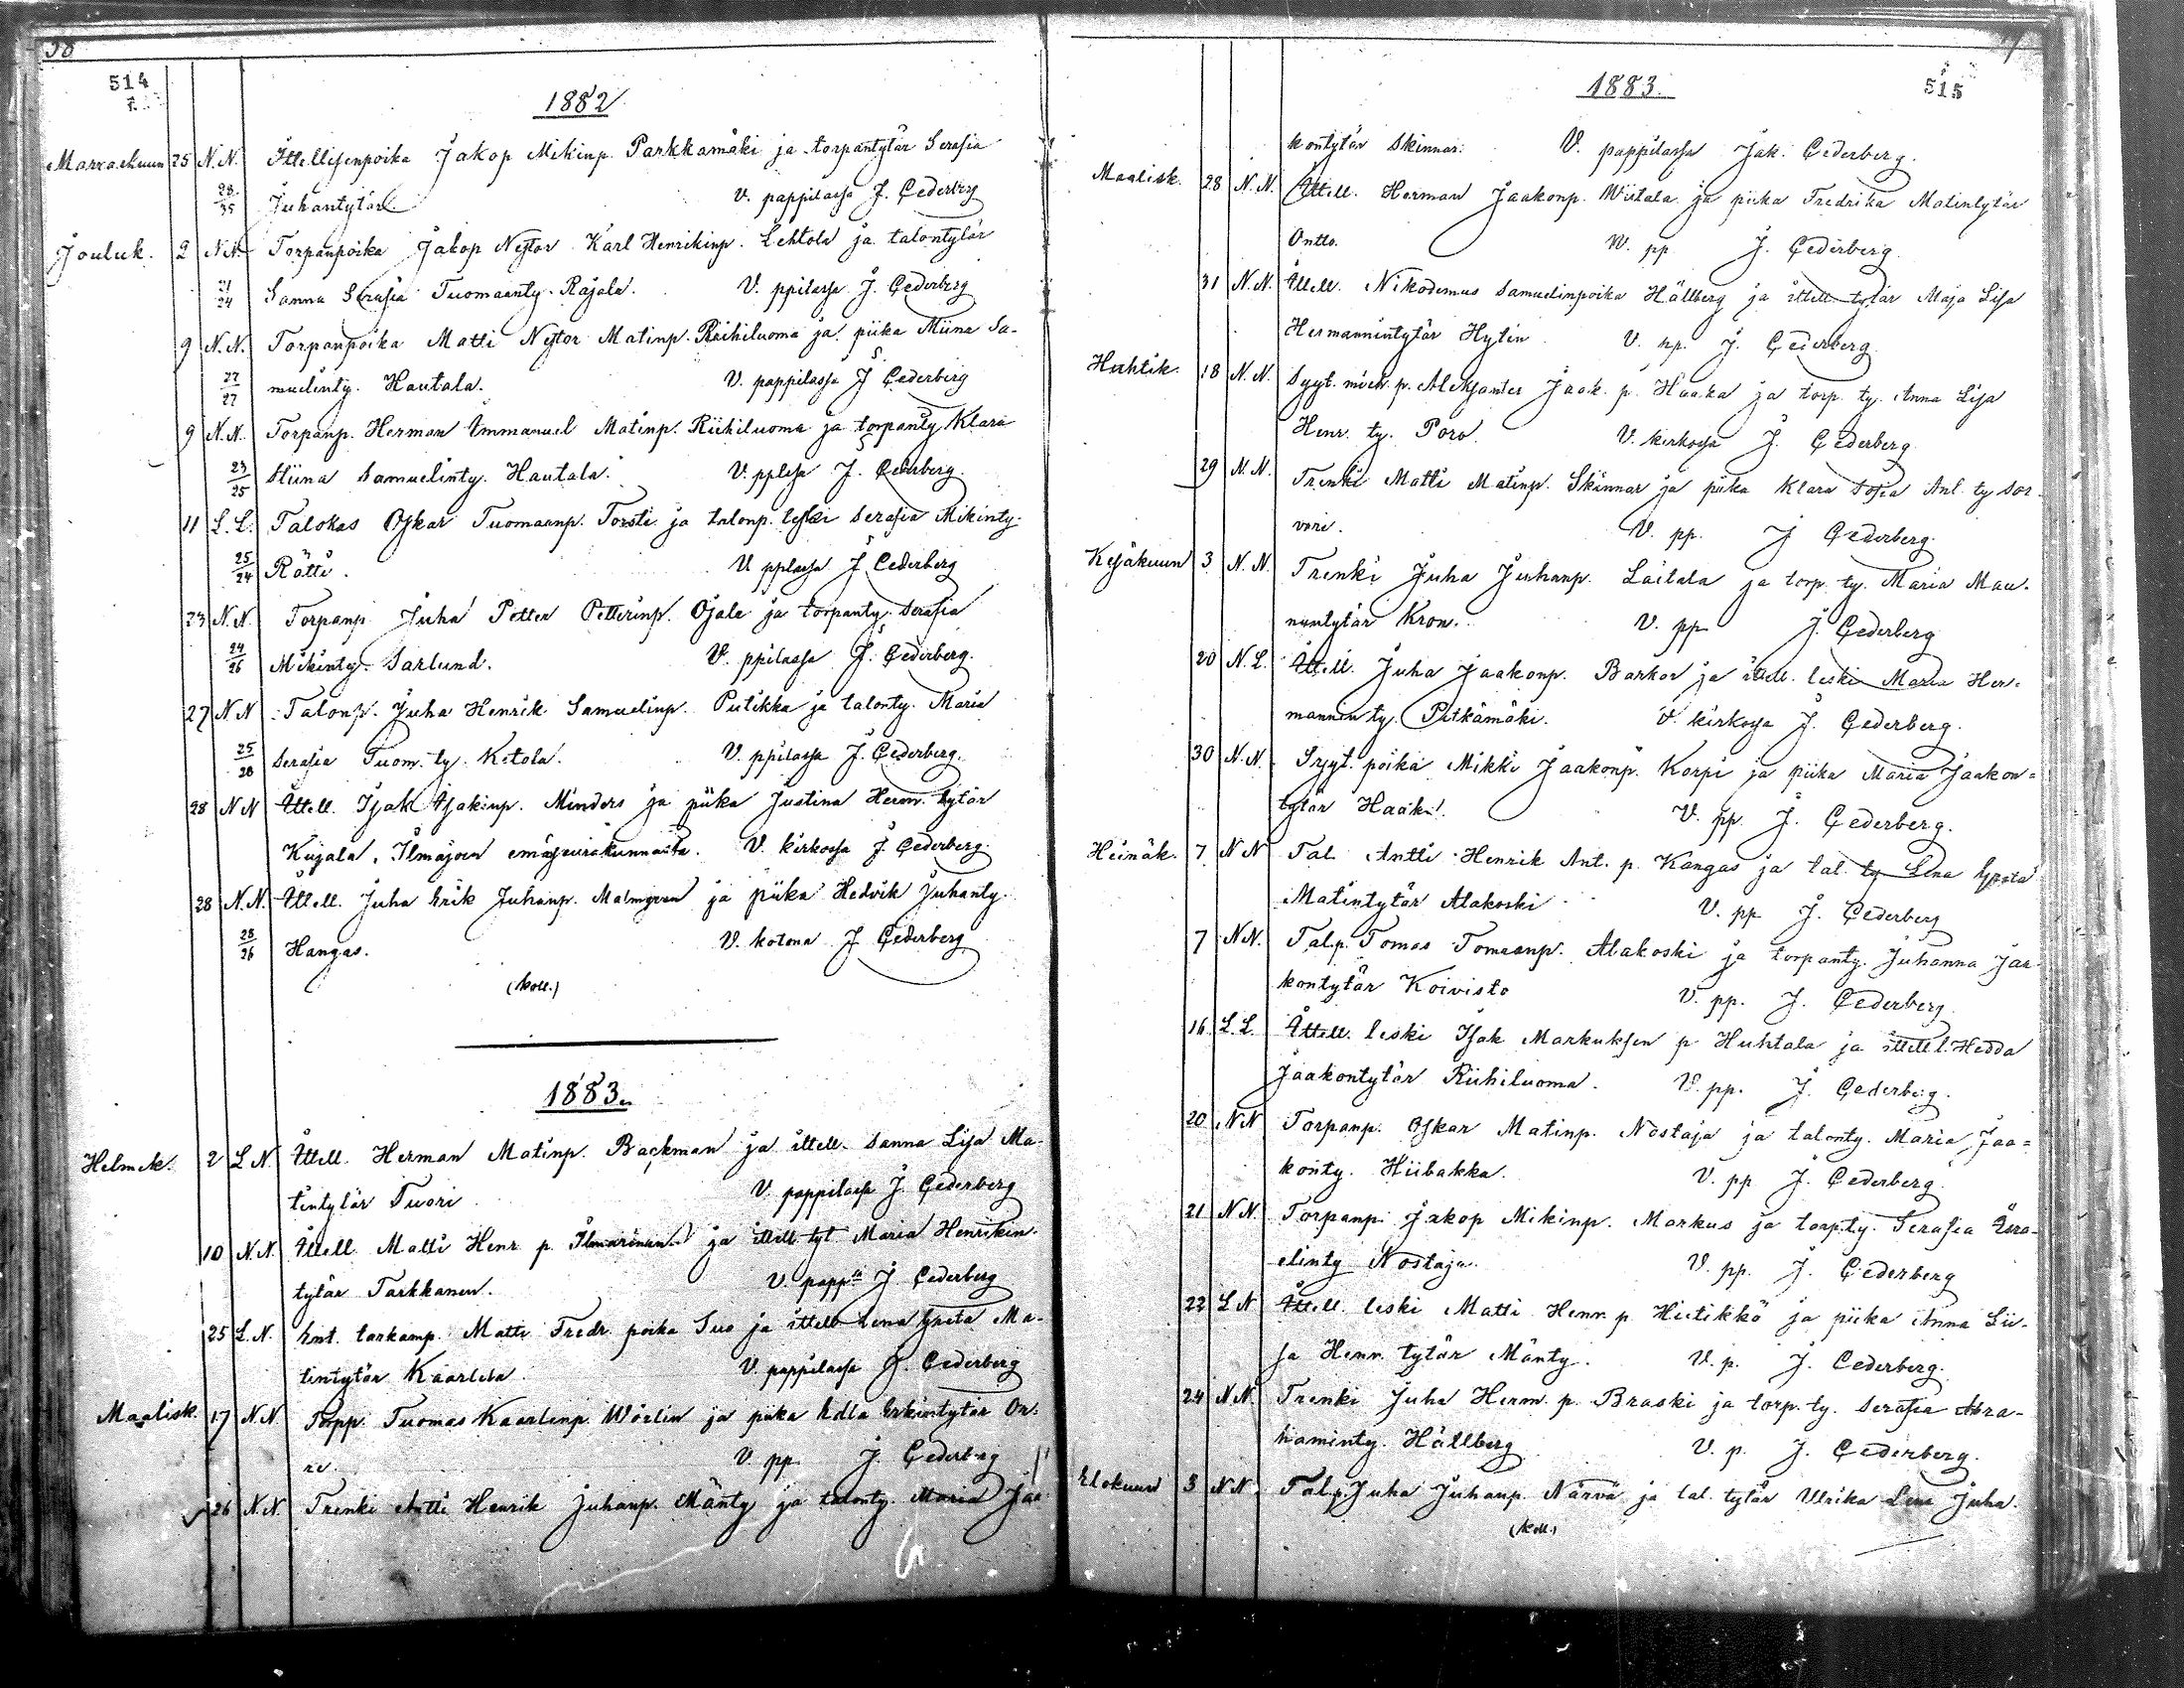 514
1882
Marraskuun 25 N.N. Ittellisenpoika Jakop Mikinp. Parkkamäki ja torpantytär Serafia
28/35 Juhantytär. V. pappilassa J. Cederberg
Jouluk. 2 N.N. Torpanpoika Jakop Nestor Karl Henrikinp. Lehtola ja talontytär
21/24 Sanna Serafia Tuomaanty. Rajala. V. ppilassa J. Cederberg
9 N.N. Torpanpoika Matti Nestor Matinp. Riihiluoma ja piika Miina Sa-
22/27 muelinty. Hautala. V. pappilassa J. Cederberg
9 N.N. Torpanp. Herman Immanuel Matinp. Riihiluoma ja torpanty Klara
23/25 Stiina Samuelinty. Hautala. V. pplssa J. Cederberg.
11 L.L. Talokas Oskar Tuomaanp. Torsti ja talonp. leski Serafia Mikinty.
25/24 Rätti. V. pplassa J. Cederberg
23 N.N. Torpanp. Juha Petter Petterinp. Ojala ja torpanty. Serafia
24/26 Mikinty. Sarlund. V. ppilassa J. Cederberg.
27 N N Talonp. Juha Henrik Samuelinp. Putikka ja talonty. Maria
25/20 Serafia Tuom. ty. Ketola. V. ppilassa J. Cederberg.
28 N N Ittell. Isak Isakinp. Minders ja piika Justina Herm. tytär
Kujala, Ilmajoen emäseurakunnasta. V. kirkossa J. Cederberg.
28 N.N. Ittell. Juha Erik Juhanp. Malmgren ja piika Hedvik Juhanty.
28/26 Hangas. V. kotona J. Cederberg
(koll.)
1883.
Helmik. 2 L N. Ittell. Herman Matinp. Backman ja ittell. Sanna Lisa Ma-
tintytär Tuori V. pappilassa J. Cederberg
10 N.N. Ittell. Matti Henr. p. Ilmarinen ja ittell. tyt. Maria Henrikin-
tytär Tarkkanen. V. papp J. Cederberg
25 L.N. Ent. torkamp. Matti Fredr. poika Suo ja ittell. Lena Greta Ma-
tintytär Kaarlela V. pappilassa J. Cederberg
Maalisk. 17 N.N. Torpp. Tuomas Kaarlinp. Wörlin ja piika Edla Erkintytär Or-
re. V. pp. J. Cederberg
26 N.N. Trenki Antti Henrik Juhanp. Mänty ja talonty. Maria Jaa
1883.
515
kontytär Skinnar. V. pappilassa Jak. Cederberg.
Maalisk. 28 N.N. Ittell. Herman Jaakonp. Wiitala ja piika Fredrika Matintytär
Ontto. W. pp J. Cederberg
31 N.N. Ittell. Nikodemus Samuelinpoika Hällberg ja ittell. tytär Maja Lisa
Hermannintytär Hytén V. pp. J. Cederberg
Huhtik. 18 N.N. Syyt. mieh. p. Aleksanter Jaak. p. Haaka ja torp. ty. Anna Lisa
Henr. ty. Poro. V. kirkossa J. Cederberg
29 N.N. Trenki Matti Matinp. Skinnar ja piika Klara Sofia Ant. ty Sor-
vari. V. pp. J Cederberg.
Kesäkuun 3 N.N. Trenki Juha Juhanp. Laitala ja torp. ty. Maria Mau-
nuntytär Kron. V. pp J. Cederberg
20 N.L. Ittell. Juha Jaakonp. Barkar ja ittell. leski Maria Her-
mannin ty. Pitkämäki. V. kirkossa J. Cederberg.
30 N.N. Syyt. poika Mikki Jaakonp. Korpi ja piika Maria Jaakon-
tytär Haaka. V. pp. J. Cederberg.
Heinäk. 7 N N Tal. Antti Henrik Ant. p. Kangas ja tal. ty Lena Greta
Matintytär Alakoski V. pp J. Cederberg
7 N N. Tal.p. Tomas Tomaanp. Alakoski ja torpanty. Juhanna Jaa-
kontytär Koivisto V. pp. J. Cederberg
16 L.L. Ittell. leski Isak Markuksen p. Huhtala ja ittell l. Hedda
Jaakontytär Riihiluoma. V. pp. J. Cederberg.
20 N N Torpanp. Oskar Matinp. Nostaja ja talonty. Maria Jaa-
konty. Hiibakka. V. pp J. Cederberg.
21 N N. Torpanp. Jakop Mikinp. Markus ja torp.ty. Serafia Isra-
elinty Nostaja. V. pp. J. Cederberg
22 L N Ittell. leski Matti Henr. p. Hietikkö ja piika Anna Lii-
sa Henr. tytär Mänty. V. p. J. Cederberg.
24 N N. Trenki Juha Herm. p. Braski ja torp. ty. Serafia Abra-
haminty. Hällberg V. p. J. Cederberg.
Elokuun 3 N N. Tal.p. Juha Juhanp. Närvä ja tal. tytär Ulrika Lena Juha.
(koll.)